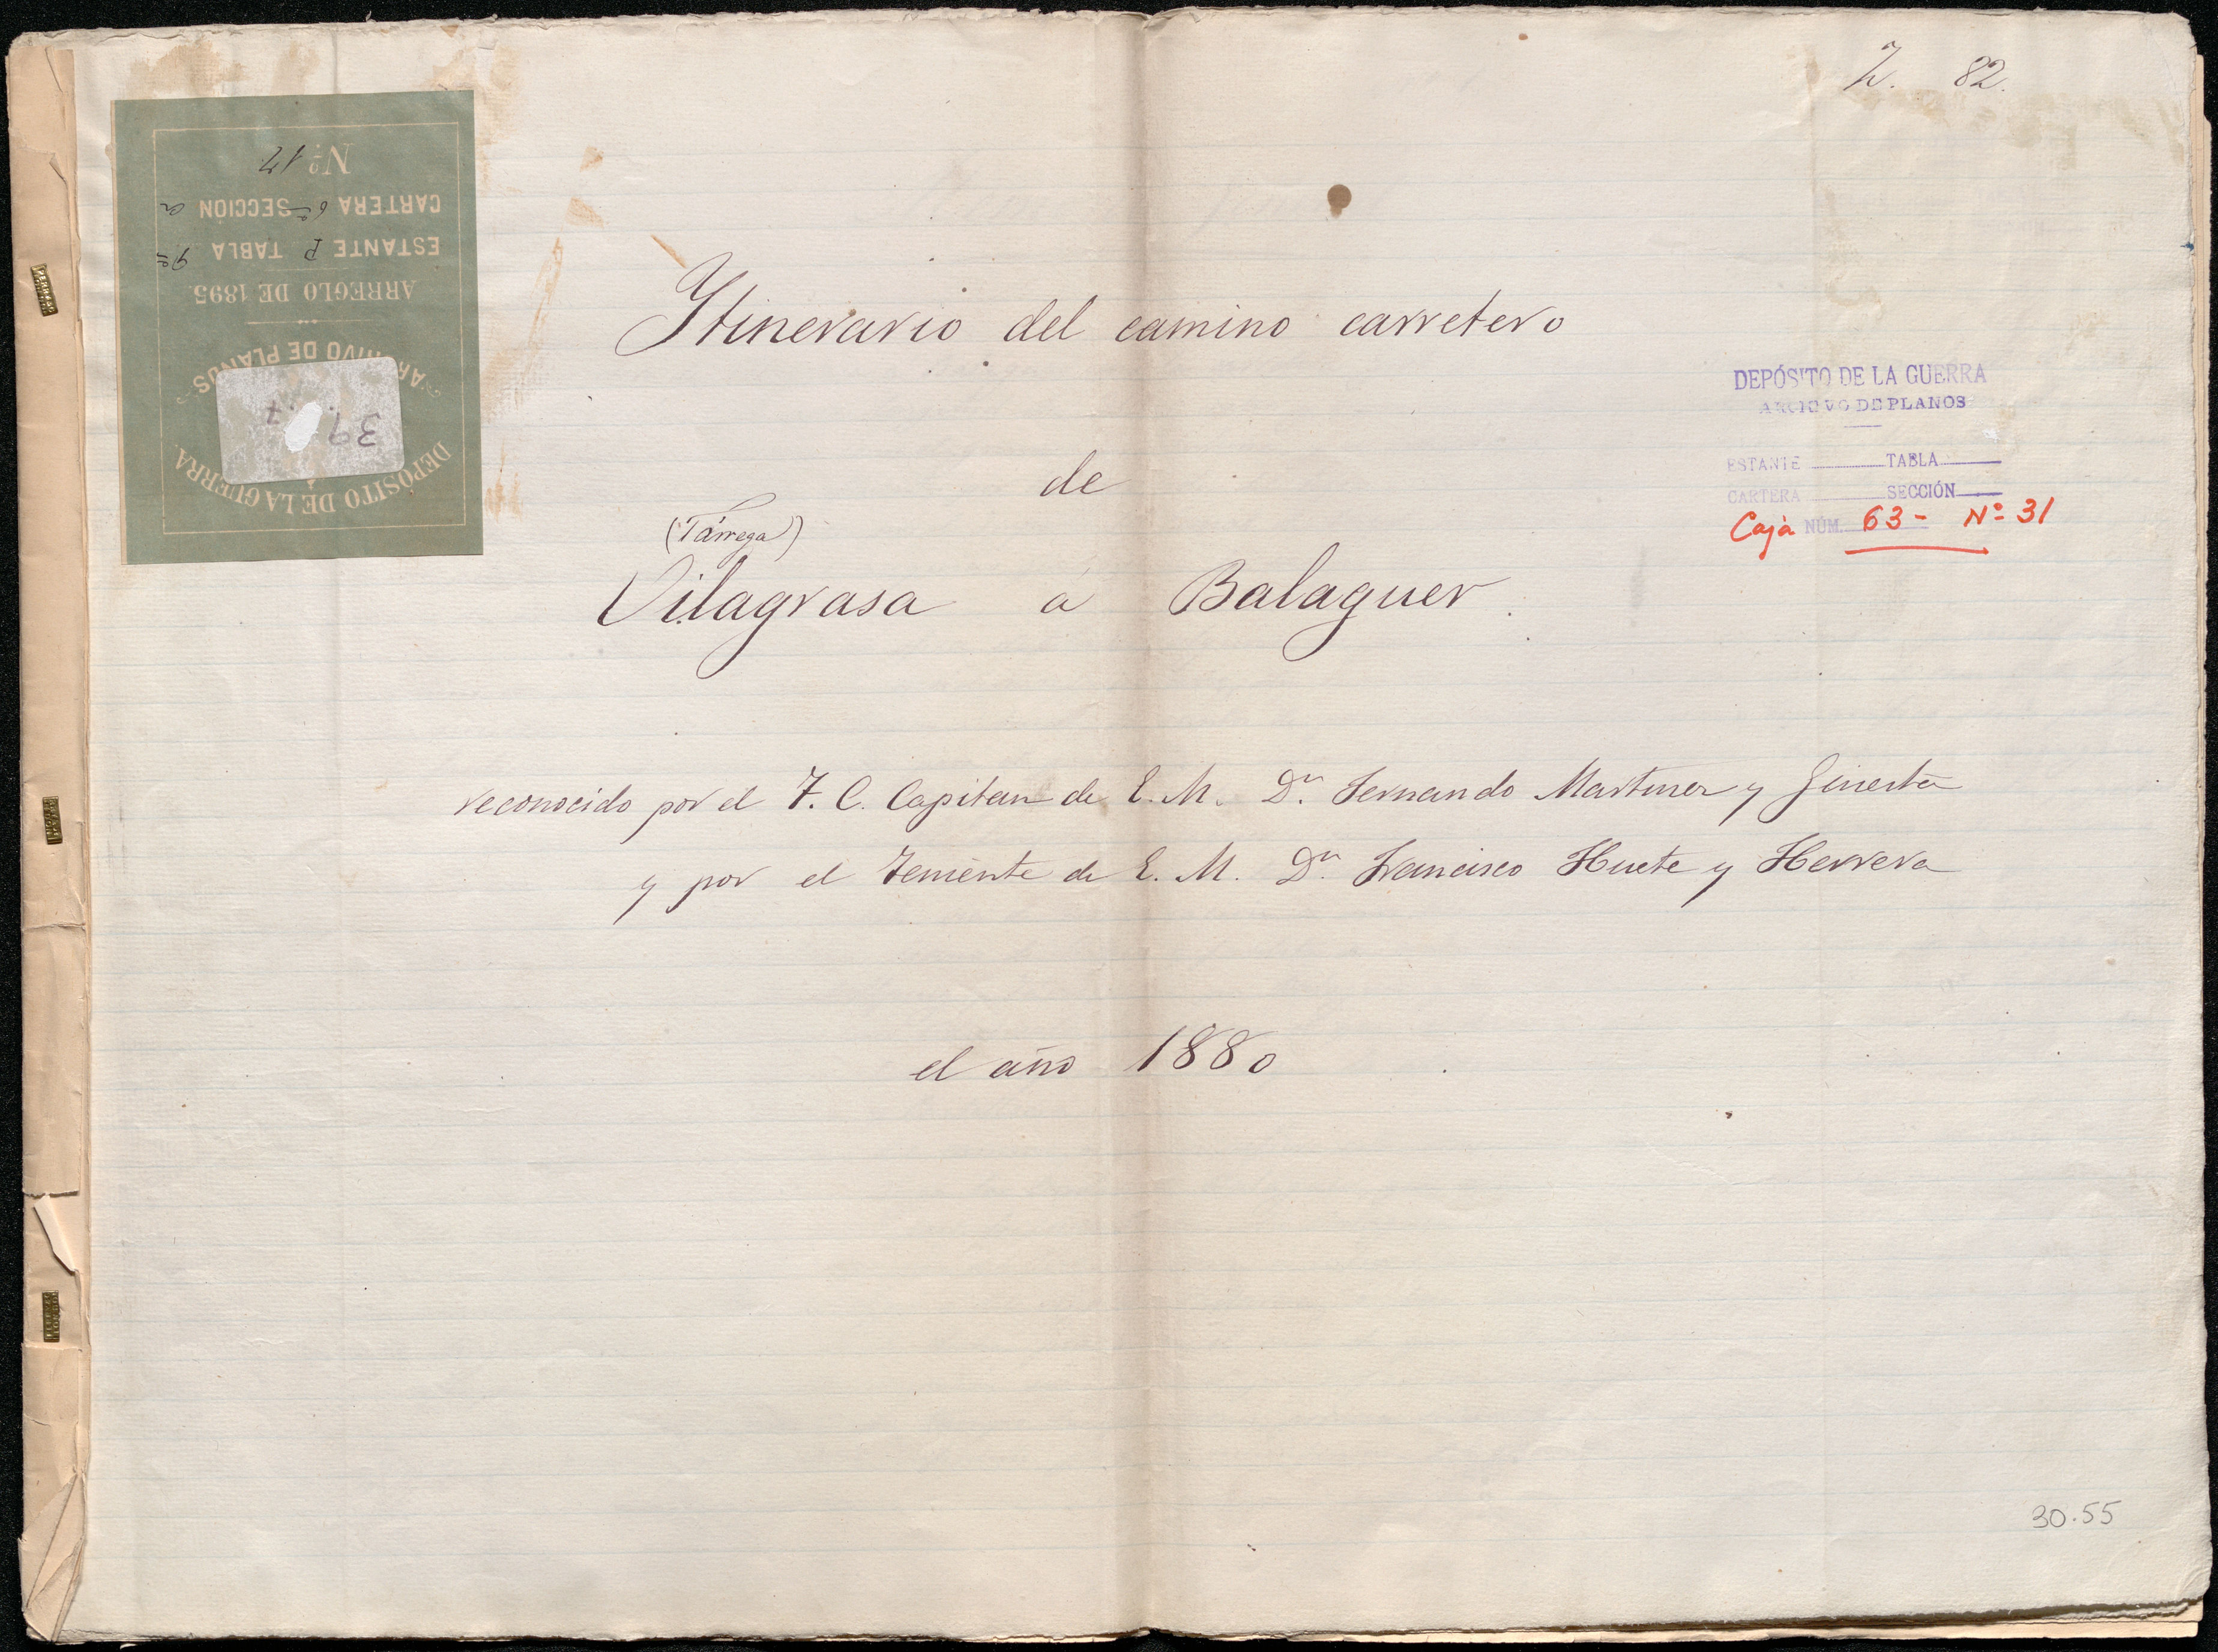 Z. 82.
DEPÓSITO DE LA GUERRA
ARCHIVO DE PLANOS
ARREGLO DE 1895
ESTANTE P TABLA 9ª
CARTERA 6ª SECCIÓN a
Nº 17
39.7
Itinerario del camino carretero
de
(Tárrega)
Vilagrasa á Balaguer.
reconocido por el T. C. Capitan de E. M. Dn. Fernando Martinez y Ginesta
y por el Teniente de E. M. Dn. Francisco Huete y Herrera
el año 1880
DEPÓSITO DE LA GUERRA
ARCHIVO DE PLANOS
ESTANTE TABLA
CARTERA SECCIÓN
Caja NÚM. 63 - Nº 31
30.55